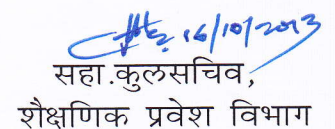 16/10/2013
सहा.कुलसचिव,
शैक्षणिक प्रवेश विभाग